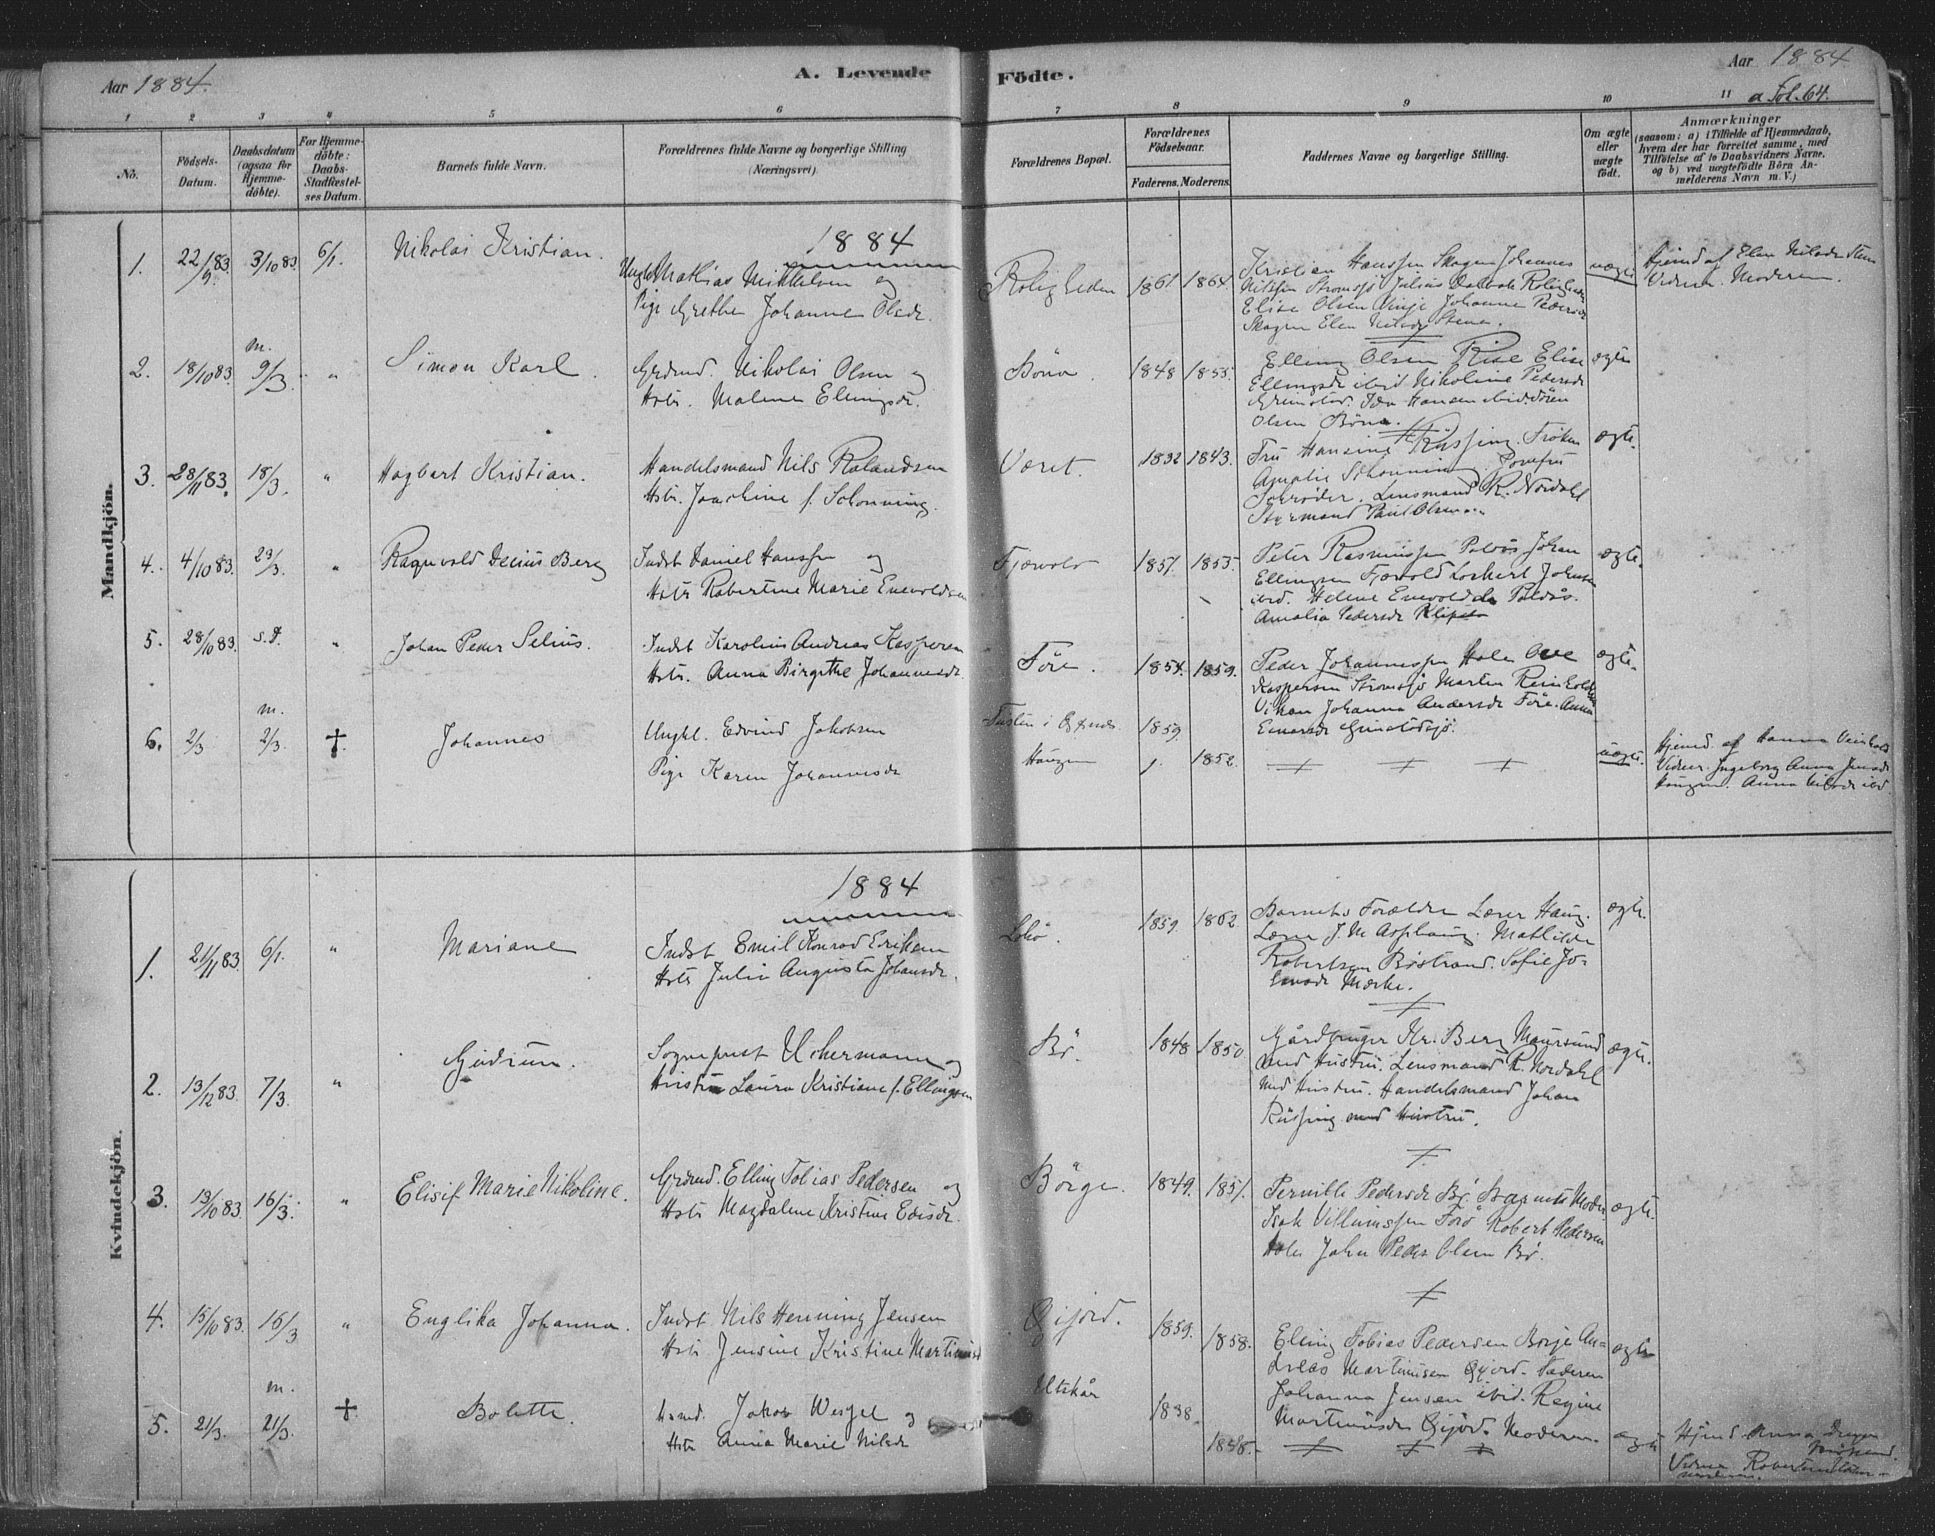 Aar 1884.
A. Levende Födte.
Aar 1884
a Fol. 64.
1 2 3 4 5 6 7 8 9 10 11
No.
Födsels-Datum.
Daabsdatum (ogsaa for Hjemme-döbte).
For Hjemme-döbte: Daabs-Stadfæstel-ses Datum.
Barnets fulde Navn.
Forældrenes fulde Navne og borgerlige Stilling (Næringsvei).
Forældrenes Bopæl.
Forældrenes Födselsaar.
Faderens. Moderens.
Faddernes Navne og borgerlige Stilling.
Om ægte eller uægte födt.
Anmærkninger
(saasom: a) i Tilfælde af Hjemmedaab,
hvem der har forrettet samme, med
Tilföielse af to Daabsvidners Navne,
og b) ved uægtefödte Börn An-
melderens Navn m. V.)
Mandkjön.
1884
1. 22/9 83. 3/10 83 6/1. Nikolai Kristian.
Ungkl Mathias Mikkelsen og
Pige Grethe Johanne Olsdr.
Roligheden 1861 1864
Kristian Hanssen Skagen Johannes
Elise Olsen Vinje Johanne Peders
Skagen Elen Nilsdr Stene.
uægte
Hjemd af Elen Nilsdr Sten
Vidner. Moderen.
2. 18/10 83. m. 9/3. " Simon Karl.
Grdmd. Nikolai Olsen og
Hstr. Malene Ellingsdr.
Böna. 1848 1855.
Elling Olsen Rise Elise
Ellingsdr ibid Nikoline Pedersdr
Olsen Böna.
ægte
3. 28/11 83. 18/3. " Hagbart Kristian.
Handelsmand Nils Rolandsen
Hstr. Joachine f. Schonning.
Været. 1832 1843.
Fru Hansine Rüssing. Fröken
Amalie Schonning. Jomfru
Schröder. Lensmand R. Nordahl
Styrmand Paul Olsen
ægte.
4. 4/10 83. 23/3. " Ragnvald Decius Berg
Indst Daniel Hanssen og
Hstr Robertine Marie Enevoldsen
Fjærvold 1857. 1853.
Peter Rasmussen Johan
Ellingsen Fjærvold Lockert Johnsen
ibid. Helene Enevoldsdr
Amalia Pedersdr
ægte.
5. 28/10 83. s.d. " Johan Peder Selius.
Indst Karolius Andreas Kaspersen
Hstr. Anna Birgithe Johannesdr.
Före. 1854. 1859.
Peder Johannessen Holm Ove
Kaspersen Strömsjö Martin Reinholds
Vikan Johanna Andersdr Före. Anna
ægte.
6. 2/3 m. 2/3. †. Johannes
Ungkl. Edvind Jakobsen
Pige Karen Johannesdr
1859.
Haugen 1852.
uægte.
Hjemd. af Hanna
Vidner. Ingeborg Anna Jensdr
Haugen. Anna Nilsdr ibd.
Kvindekjön.
1884
1. 21/11 83 6/1. " Mariane
Indst Emil Konrad Eriksen
Hstr Julia Augusta Johansdr.
1859. 1862
Barnets Forældre Lærer Haug.
Lærer J. M. Asphaug. Mathilde
Robertsen Böstrand. Sofie Jo-
ægte.
2. 13/12 83. 7/3. " Gudrun.
Sogneprest Uchermann og
Hustru Laura Kristiane f. Ellingsen
Bö. 1848 1850.
Gårdbruger Kr. Berg Maursund
med Hustru. Lensmand R. Nordahl
med Hustru. Handelsmand Johan
Rüssing med Hustru.
ægte.
3. 13/10 83. 16/3. " Elisif Marie Nikoline.
Grdmd. Elling Tobias Pedersen og
Hstr Magdalene Kristine
Börge. 1849. 1851.
Pernille Pedersdr Bö. Barnets Moder
Isak Villumssen Forö Robert Pedersen
Holm John Peder Olsen Bö.
ægte.
4. 15/10 83. 16/3 " Englika Johanna.
Indst. Nils Henning Jensen
Hstr. Jensine Kristine Martinusd
1859. 1858.
Elling Tobias Pedersen Börje An-
dreas Martinusen. Faderen
Johanna Jensen ibid. Regine
Martinusdr. Moderen.
ægte
5. 21/3. m. 21/3. † Bolette.
Jakob Wesjel og
Hstr Anna Marie Nilsdr
Utskår 1838. 1858.
ægte
Hjemd. Anna
Vidner